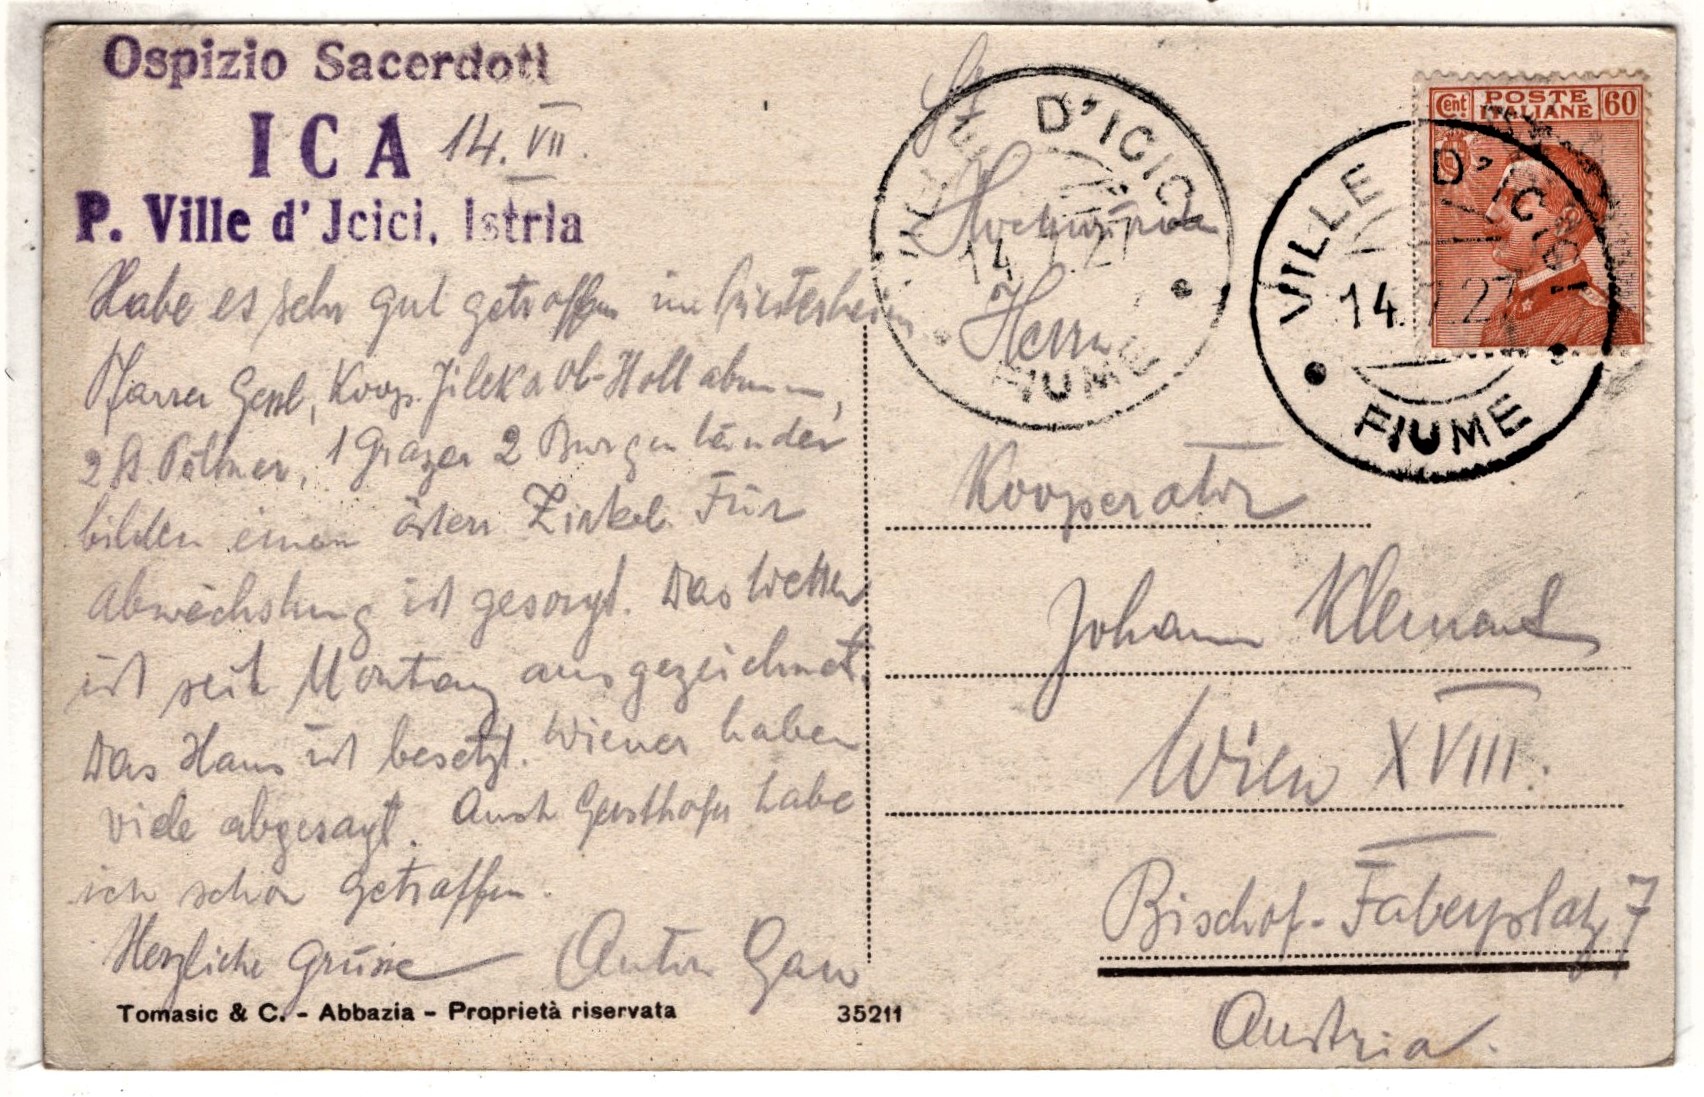 Ospizio Sacerdoti
ICA 14. VII.
P. Ville d' Jcici, Istria
Habe es sehr gut getroffen im Priesterheim
Pfarrer Koop. Jilek a Ob-Hollabrunn,
2 St. Pöltner, 1 Grazer 2 Burgenländer
bilden einen österr Zirkel. Für
Abwechslung ist gesorgt. Das Wetter
ist seit Montag ausgezeichnet.
Das Haus ist besetzt. Wiener haben
viele abgesagt. Auch Gersthofer habe
ich schon getroffen.
Herzliche Grüsse Anton
Tomasic & C. - Abbazia - Proprietà riservata 35211
VILLE D'ICICI
14.7.27
FIUME
Cent POSTE ITALIANE 60
VILLE D'ICICI
14.7.27
FIUME
Sr
Hochwürden
Herrn
Kooperator
Johann
Wien XVIII.
Bischof-Faberplatz 7
Austria.